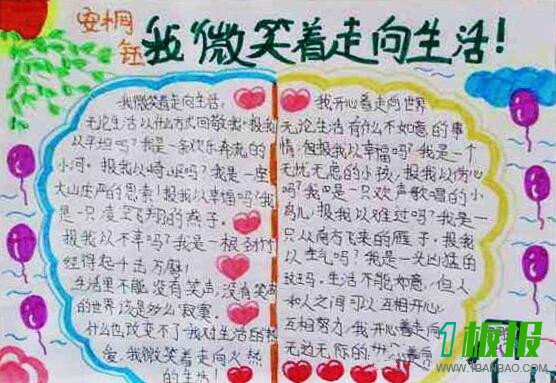 安桐
钰
我微笑着走向生活！
我微笑着走向生活，
无论生活以什么方式回敬我。报我
以平坦吗？我是一条欢乐奔流的
小河。报我以崎岖吗？我是一座
大山庄严的思索！报我以幸福吗？我
是一只凌空飞翔的燕子。
报我以不幸吗？我是一根劲竹
经得起千击万磨！
生活里不能没有笑声，没有笑声
的世界该是多么寂寞。
什么也改变不了我对生活的热
爱，我微笑着走向火热
的生活！
我开心着走向世界
无论生活有什么不如意的事
情，但报我以幸福吗？我是一个
无忧无愿的小孩，报我以伤心
吗？我是一只欢声歌唱的小
鸟儿，报我以难过吗？我是一
只从南方飞来的雁子。报我
以生气吗？我是一头凶猛的
斑玛。生活不能如意，但人
和人之间可以互相开心，
互相努力，我开心着走向
无边无际的世界
1板报
WWW.1BANBAO.COM